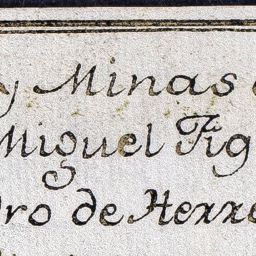 y Minas
Miguel Fig
dro de Herre